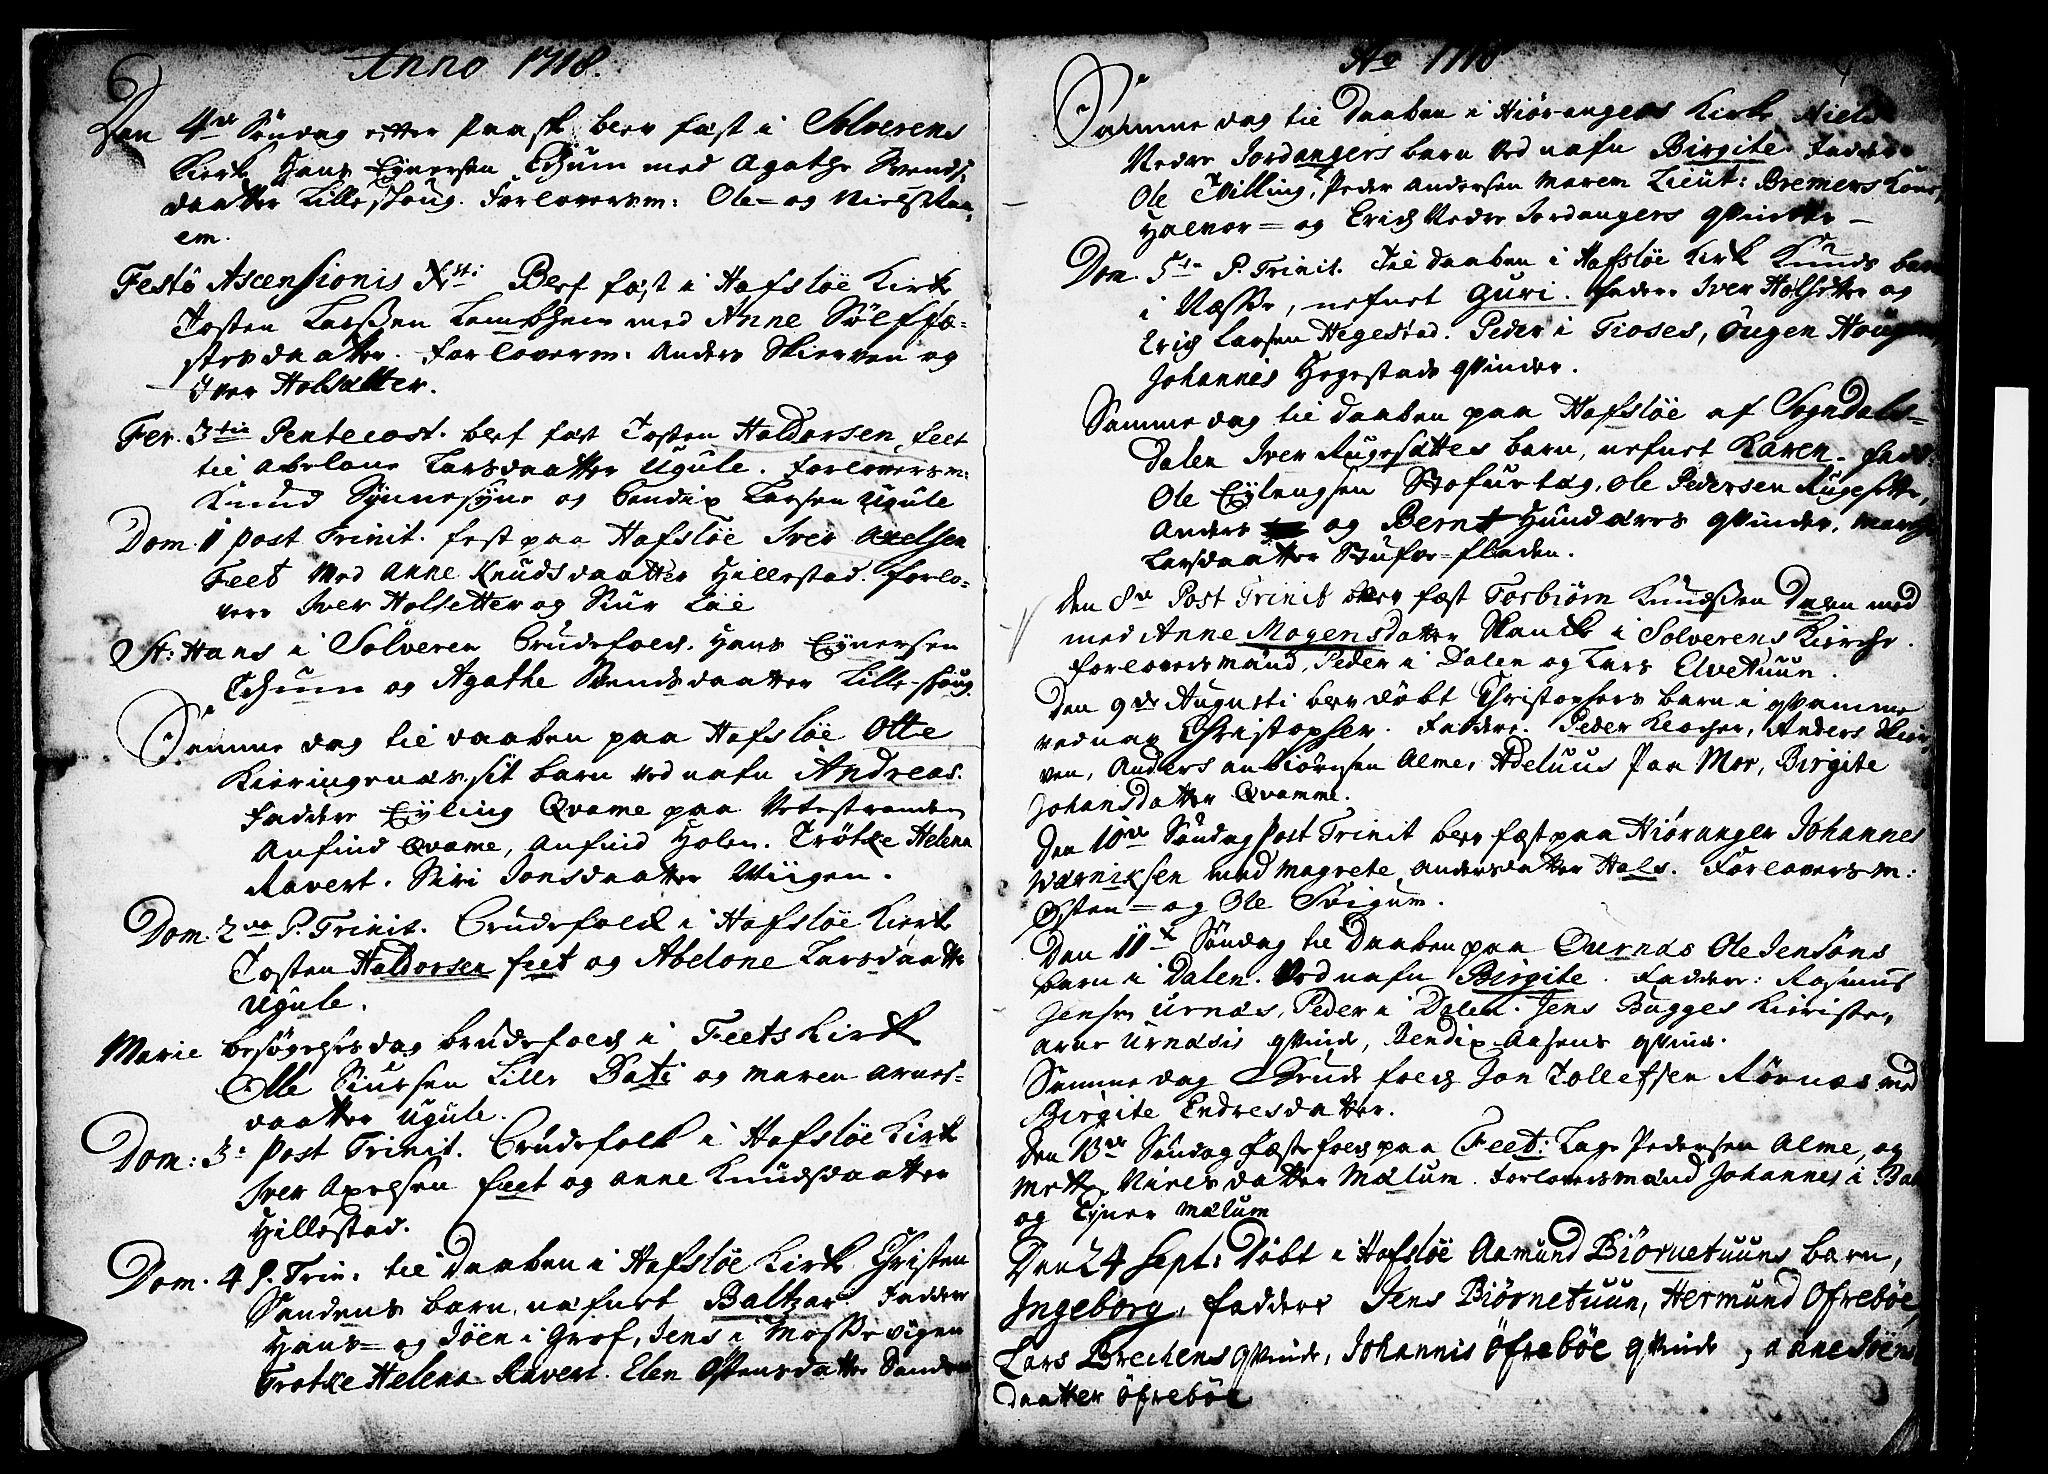 Anno 1718.
Den 4de Søndag efter Paasche blev fæst i Solverens
Kierk Hans Eynersen Thum med Agathe Svends
daatter Lille Houg. Forloversm: Ole = og Niels
em.
Festo Ascensionis Xsti Blef fæst i Hafsløe Kirk
Tosten Larssen Lambhein med Anne Sølffæ-
stersdaatter. Forloverm: Anders Skierven og
Iver Holsætter.
Fer. 3tia Pentecost. blef fæst Tosten Haldorsen feet
til Abelone Larsdaatter Ugule. Forloversm:
Knud Synnesyne og Bendix Larsen Ugule
Dom. 1 post Trinit. fest paa Hafsløe Iver Axelsen
Feet Med Anne Knudsdaatter Hillestad. forlo-
vere Iver Holsetter og Siur Løe
St: Hans i Solveren Brudefolch. Hans Eynersen
Thum og Agathe Svendsdaatter Lille-houg.
Samme dag til daaben paa Hafsløe Otte
Kieringenæssit barn ved nafn Andreas.
Faddere Eyling Qvame paa Vetestranden
Anfind Qvame, Anfind Holen. Trotze Helena
Ravert. Siri Jonsdaatter Wiigen.
Dom. 2da P. Trinit. Brudefolck i Hafsløe Kierk
Tosten Haldorsen feet og Abelone Larsdaatter
Ugule.
Marie besøgelsesdag brudefolch i Feets Kirk
Olle Siursen Lille Bati og Maren Arnes-
daatter Ugule.
Dom: 3. Post Trinit. Brudefolck i Hafsløe Kirk
Iver Axelsen feet og Anne Knudsdaatter
Hillestad.
Dom. 4 P. Trin. til Daaben i Hafsløe Kirk Christen
Sandens barn, næfnet Baltzar. Faddere
Hans = og Jøen i Grof, Jens i Mosseviigen
Trotze Helena Ravert. Elen Østensdatter Sanden
Ao 1718
Samme dag til Daaben i Hiørangers Kirk Niels
Nedre Jordangers barn ved nafn Birgite. Faddere
Ole Tvilling, Peder Andersen Maren Lieut: Bremers Kone,
Halvor = og Erich Nedre Jordangers qvinder
Dom. 5te P. Trinit. Til daaben i Hafsløe Kirk Knuds barn
i Næsse, nefnet Guri. Faddere Iver Holsetter og
Erich Larsen Hegestad. Peder i Tioses, Eugen Hougen
Johannis Hegestads qvinder.
Samme dag til daaben paa Hafsløe af Sogndals-
Dalen Iver Rugesættes barn, nefnet Karen. Fadd:
Ole Eylengsen Stofuehaug, Ole Pedersen Rugesette,
Anders og Bernt Hundæres qvinder, Marthe
Larsdaatter Stufve=fladen.
den 8de Post Trinit blev fæst Torbiørn Knudssen Dalen med
med Anne Mogensdatter Skanck i Solverens Kierche.
Forloversmænd, Peder i Dalen og Lars Elvetuun.
Den 9de Augusti blev døbt Christophers barn i qvamme
ved nav Christopher. Faddere. Peder Klocher, Anders Skier-
ven, Anders Anbiørnsen Alme, Adeluus Paa Mor, Birgite
Johansdatter Qvamme.
Den 10de Søndag Post Trinit blev fæst paa Hiøranger Johannes
Wærniksen med Magrete Andersdatter Hals. Forloversm:
Østen = og Ole Søigum.
Den 11te Søndag til Daaben paa Ournæs Ole Jensøns
barn i Dalen. Ved nafn Birgite. Faddere: Rasmus
Jensen Urnæs, Peder i Dalen. Jens Bugges Kieriste,
Arne Urnæsis qvinde, Bendix Aasens qvind.
Samme dag Brudefolch Jon Tollefsen Rørnæs med
Birgite Endresdatter.
Den 13de Søndag Fæstefolch paa Feet: Lage Pedersen Alme, og
Mette Nielsdatter Mælum. Forloversmænd Johannes i
og Ejner Mælum
Den 24 Sept: Døbt i Hafsløe Aamund Biørnetuuns barn,
Ingeborg, faddere Jens Biørnetuun, Hermund Ofrebøe,
Lars Brechens qvinde, Johannis Øfrebøe qvinde, Anne Jøens
Daatter Øfrebøe